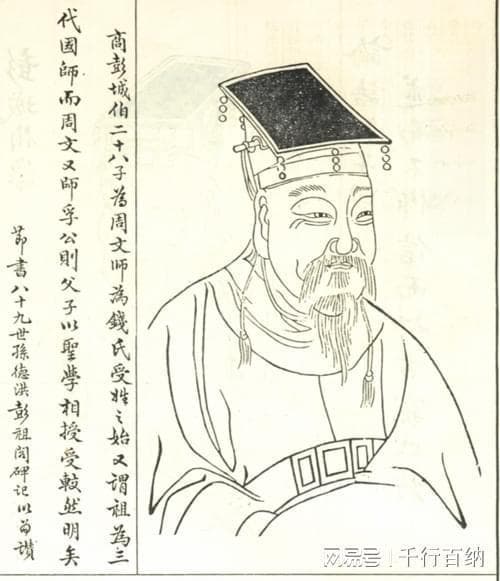 商彭城伯二十八子為周文師為錢氏受姓之始又謂祖為三
代國師而周文又師孚公則父子以聖學相授受較然明矣
節書八十九世孫德洪彭祖閣碑記以為讚
网易号 | 千行百纳